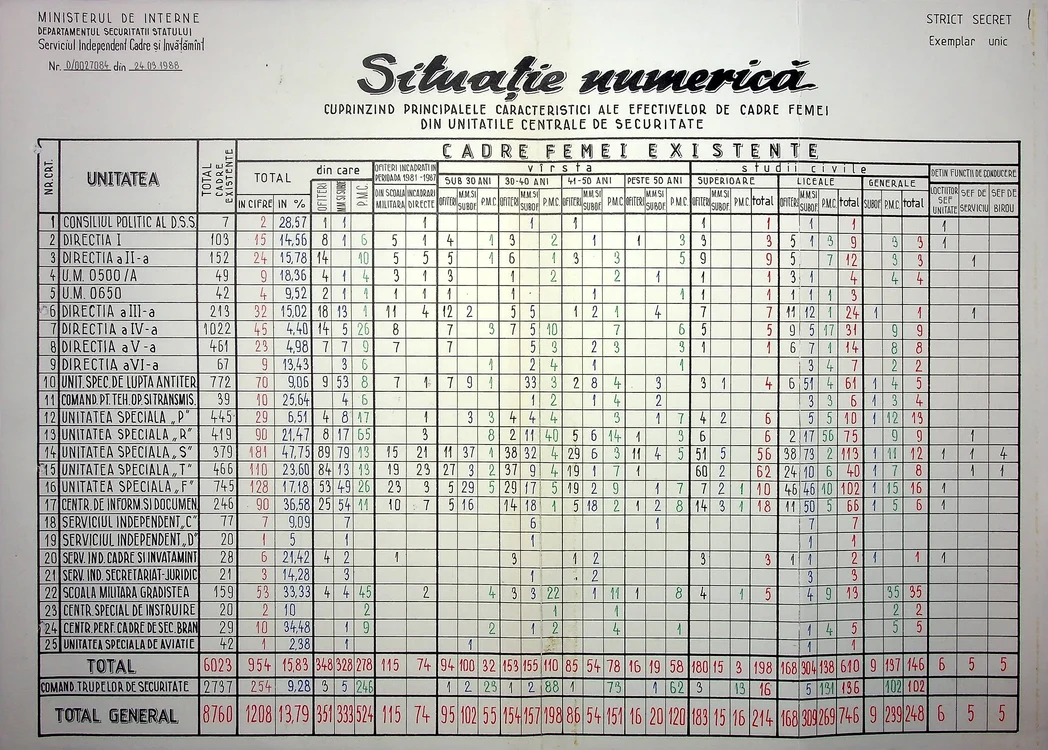 MINISTERUL DE INTERNE
DEPARTAMENTUL SECURITATII STATULUI
Serviciul Independent Cadre și Învățămînt
Nr. D/0027084 din 24.05.1988
STRICT SECRET
Exemplar unic
Situație numerică
CUPRINZIND PRINCIPALELE CARACTERISTICI ALE EFECTIVELOR DE CADRE FEMEI
DIN UNITATILE CENTRALE DE SECURITATE
NR. CRT. UNITATEA TOTAL CADRE EXISTENTE CADRE FEMEI EXISTENTE
TOTAL din care OFITERI INCADRATI IN PERIOADA 1981-1987 vîrsta studii civile DETIN FUNCTII DE CONDUCERE
SUB 30 ANI 30-40 ANI 41-50 ANI PESTE 50 ANI SUPERIOARE LICEALE GENERALE
IN CIFRE IN % OFITERI MM SI SUBOF. P.M.C. DIN SCOALA MILITARA INCADRARI DIRECTE OFITERI M.M.SI SUBOF. P.M.C. OFITERI M.M.SI SUBOF. P.M.C. OFITERI M.M.SI SUBOF. P.M.C. OFITERI M.M.SI SUBOF. P.M.C. OFITERI M.M.SI SUBOF. P.M.C. total OFITERI M.M.SI SUBOF. P.M.C. total SUBOF. P.M.C. total LOCTIITOR SEF UNITATE SEF DE SERVICIU SEF DE BIROU
1 CONSILIUL POLITIC AL D.S.S. 7 2 28,57 1 1 1 1 1 1 1 1 1 1
2 DIRECTIA I 103 15 14,56 8 1 6 5 1 4 1 3 2 1 1 3 3 3 5 1 3 9 3 3 1
3 DIRECTIA a II-a 152 24 15,78 14 10 5 5 5 1 6 1 3 3 5 9 9 5 7 12 3 3 1
4 U.M. 0500/A 49 9 18,36 4 1 4 3 1 3 1 2 2 1 1 1 3 1 4 4 4
5 U.M. 0650 42 4 9,52 2 1 1 1 1 1 1 1 1 1 1 1 1 3
6 DIRECTIA a III-a 213 32 15,02 18 13 1 11 4 12 2 5 5 1 2 1 4 7 7 11 12 1 24 1 1 1
7 DIRECTIA a IV-a 1022 45 4,40 14 5 26 8 7 3 7 5 10 7 6 5 5 9 5 17 31 9 9
8 DIRECTIA a V-a 461 23 4,98 7 7 9 7 7 5 3 2 3 3 1 1 6 7 1 14 8 8
9 DIRECTIA a VI-a 67 9 13,43 3 6 1 2 4 1 1 3 4 7 2 2
10 UNIT.SPEC.DE LUPTA ANTITER. 772 70 9,06 9 53 8 7 1 7 9 1 33 3 2 8 4 3 3 1 4 6 51 4 61 1 4 5
11 COMAND.PT.TEH.OP.SI TRANSMIS. 39 10 25,64 4 6 1 2 1 4 2 3 3 6 1 3 4
12 UNITATEA SPECIALA „P" 445 29 6,51 4 8 17 1 3 3 4 4 4 3 1 7 4 2 6 5 5 10 1 12 13
13 UNITATEA SPECIALA „R" 419 90 21,47 8 17 65 3 8 2 11 40 5 6 14 1 3 6 6 2 17 56 75 9 9 1
14 UNITATEA SPECIALA „S" 379 181 47,75 89 79 13 15 21 11 37 1 38 32 4 29 6 3 11 4 5 51 5 56 38 73 2 113 1 11 12 1 1 4
15 UNITATEA SPECIALA „T" 466 110 23,60 84 13 13 19 23 27 3 2 37 9 4 19 1 7 1 60 2 62 24 10 6 40 1 7 8 1 1
16 UNITATEA SPECIALA „F" 745 128 17,18 53 49 26 23 3 5 29 5 29 17 5 19 2 9 1 7 7 2 1 10 46 46 10 102 1 15 16 1
17 CENTR. DE INFORM.SI DOCUMEN. 246 90 36,58 25 54 11 10 7 5 16 14 18 1 5 18 2 1 2 8 14 3 1 18 11 50 5 66 1 5 6 1
18 SERVICIUL INDEPENDENT „C" 77 7 9,09 7 6 1 7 7
19 SERVICIUL INDEPENDENT „D" 20 1 5 1 1 1 1
20 SERV. IND. CADRE SI INVATAMINT 28 6 21,42 4 2 1 3 1 2 3 3 1 1 2 1 1 1
21 SERV. IND. SECRETARIAT-JURIDIC 21 3 14,28 3 1 2 3 3
22 SCOALA MILITARA GRADISTEA 159 53 33,33 4 4 45 2 4 3 3 22 1 11 1 8 4 1 5 4 9 13 35 35
23 CENTR. SPECIAL DE INSTRUIRE 20 2 10 2 1 1 2 2
24 CENTR. PERF. CADRE DE SEC. BRAN 29 10 34,48 1 9 2 1 2 4 1 1 4 5 5 5
25 UNITATEA SPECIALA DE AVIATIE 42 1 2,38 1 1 1 1
TOTAL 6023 954 15,83 348 328 278 115 74 94 100 32 153 155 110 85 54 78 16 19 58 180 15 3 198 168 304 138 610 9 137 146 6 5 5
COMAND. TRUPELOR DE SECURITATE 2737 254 9,28 3 5 246 1 2 23 1 2 88 1 73 1 62 3 13 16 5 131 136 102 102
TOTAL GENERAL 8760 1208 13,79 351 333 524 115 74 95 102 55 154 157 198 86 54 151 16 20 120 183 15 16 214 168 309 269 746 9 239 248 6 5 5